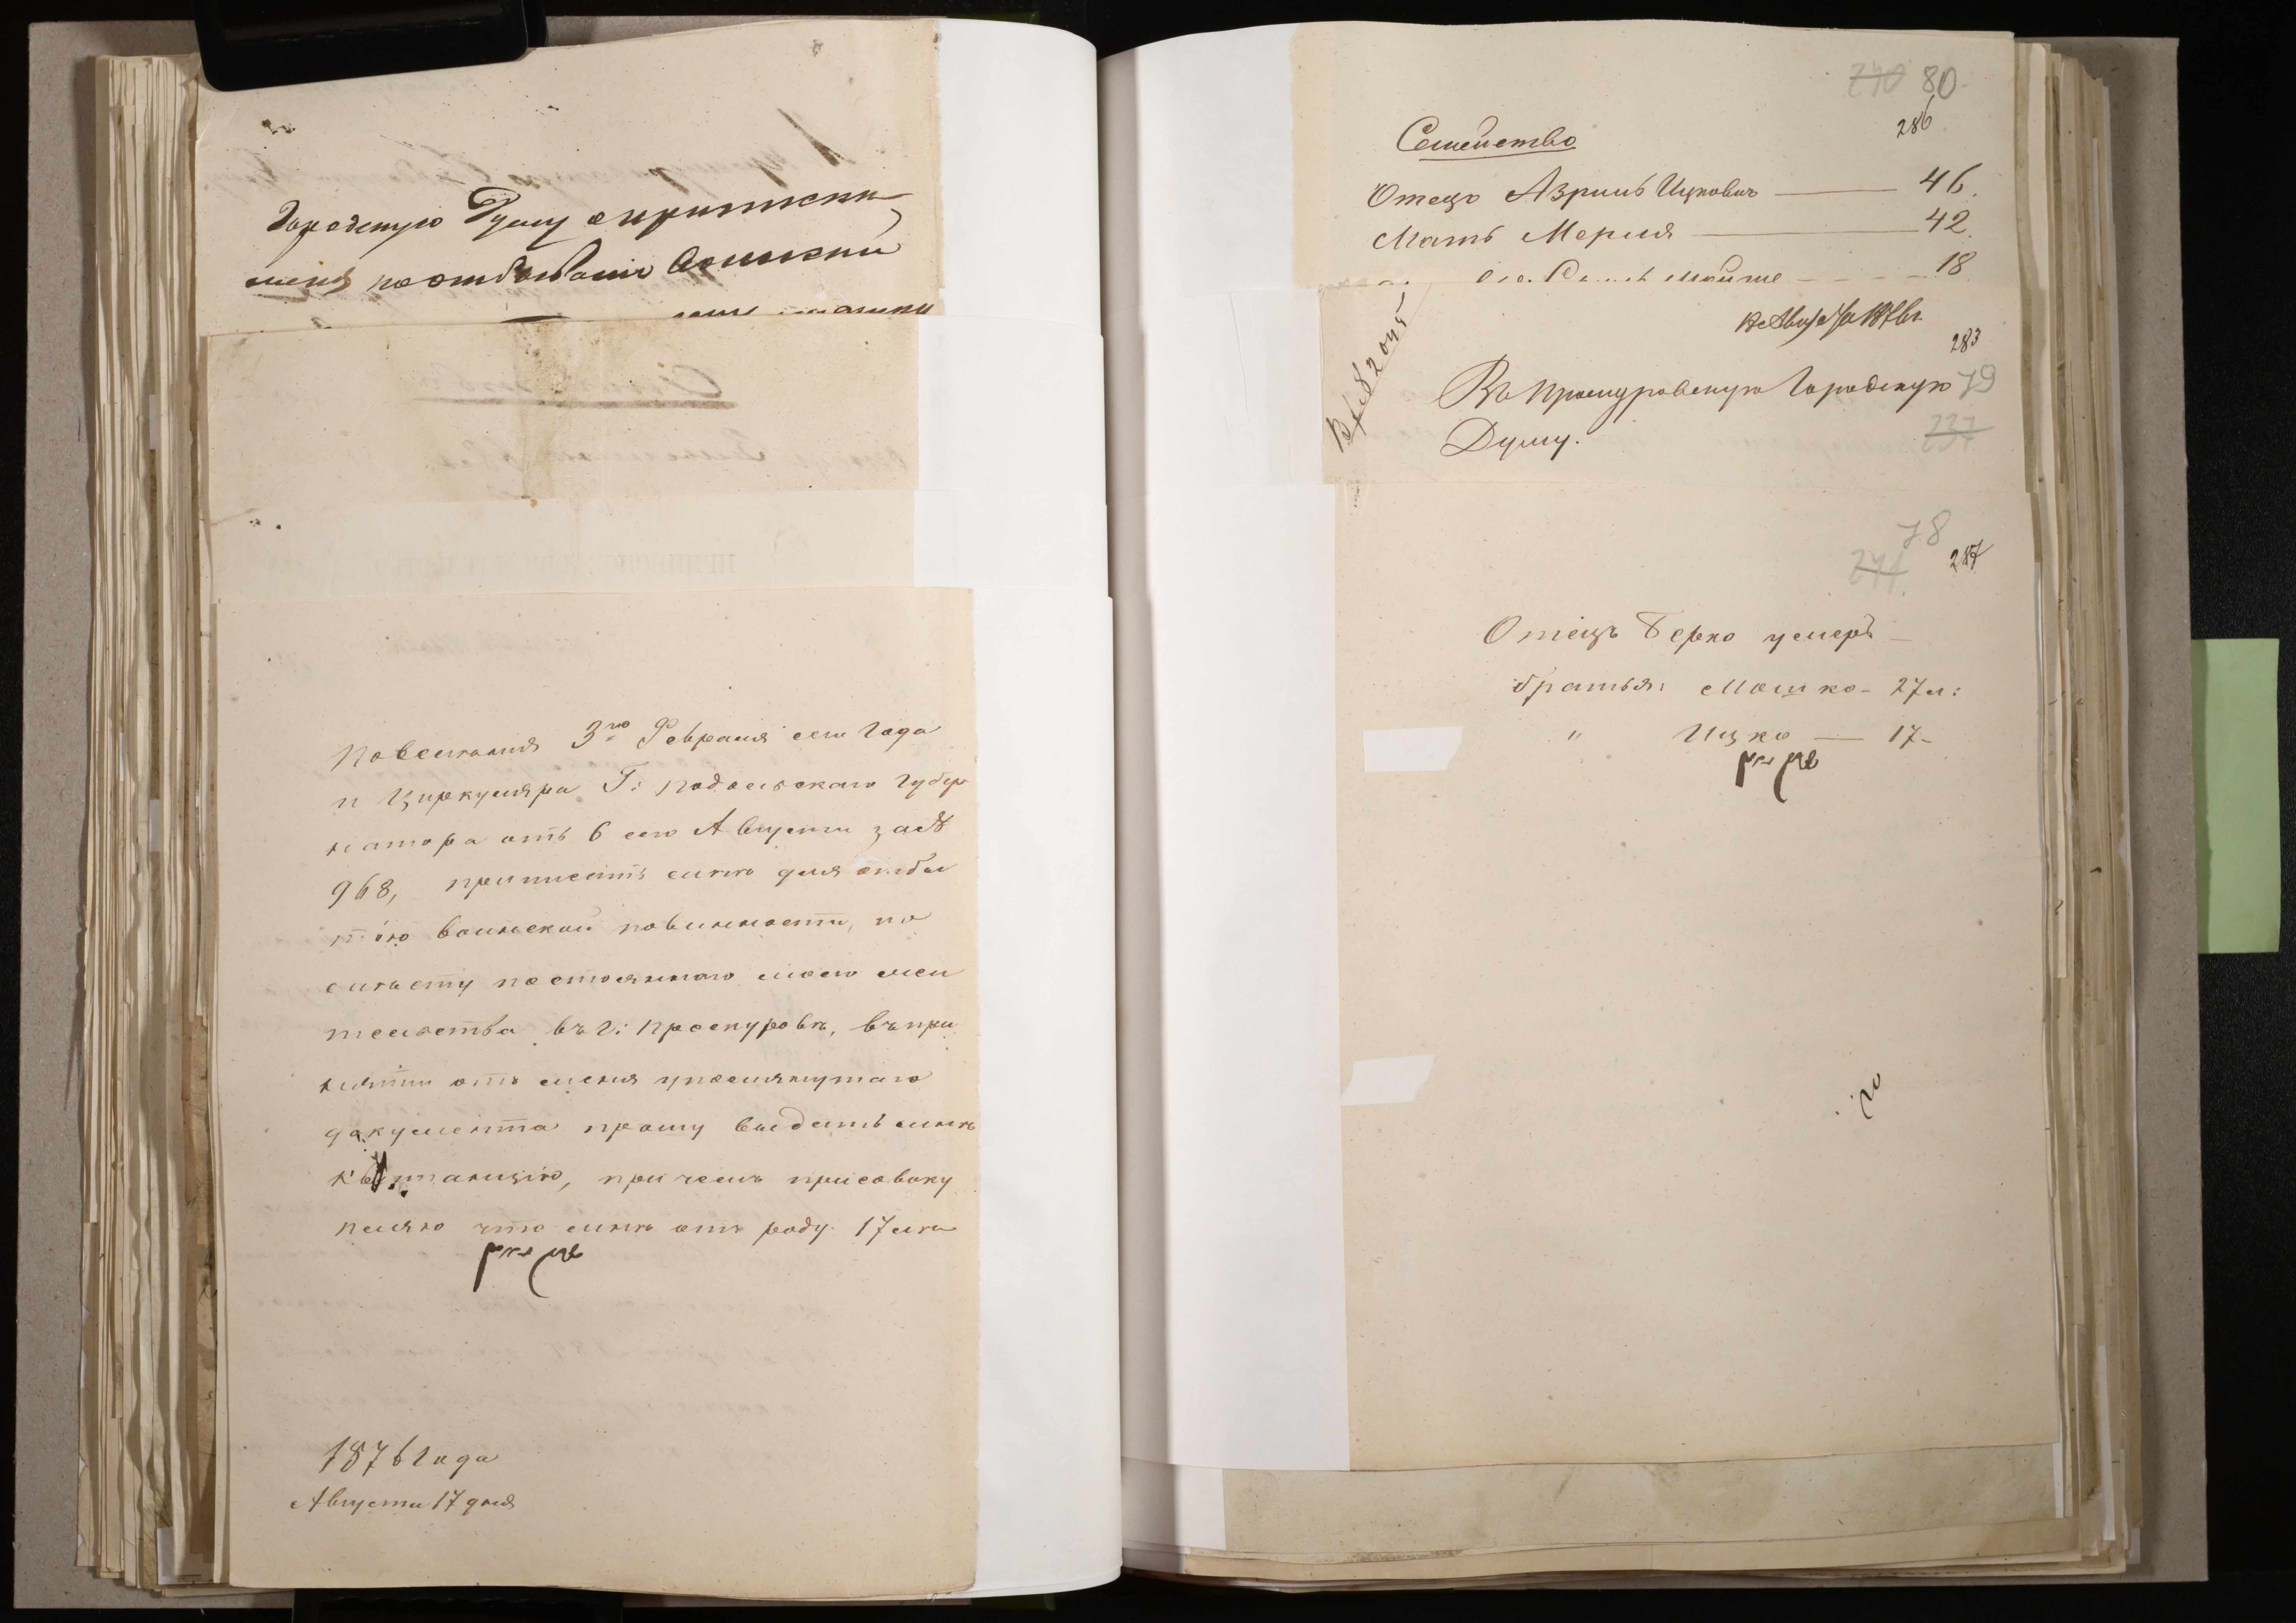 Городскую Думу о припискѣ
меня по отбыванію воинской
Повелѣнія 3го Февраля сего Года
и Циркуляра Г: Подольскаго Губер
натора отъ 6 сего Августа за №
968, приписать мѣня для отбы
тію воинской повинности, по
мѣсту постояннаго моего жи
тельства въ г: Проскуровѣ, въ при
нятіи отъ меня упомянутаго
документа прошу выдать мнѣ
квитанцію, при чемъ присовоку
пляю что мнѣ отъ роду 17 лѣт
1876 Года
Августа 17 дня
240 80
286
Семейство
Отецъ Азриль Ицковичъ — 46.
Мать Мерля — 42.
18
283
Въ Проскуровскую Городскую 79
Думу. 237
78
241 287
Отецъ Берко умеръ —
братья: Мошко - 27 л:
" Ицко — 17 -